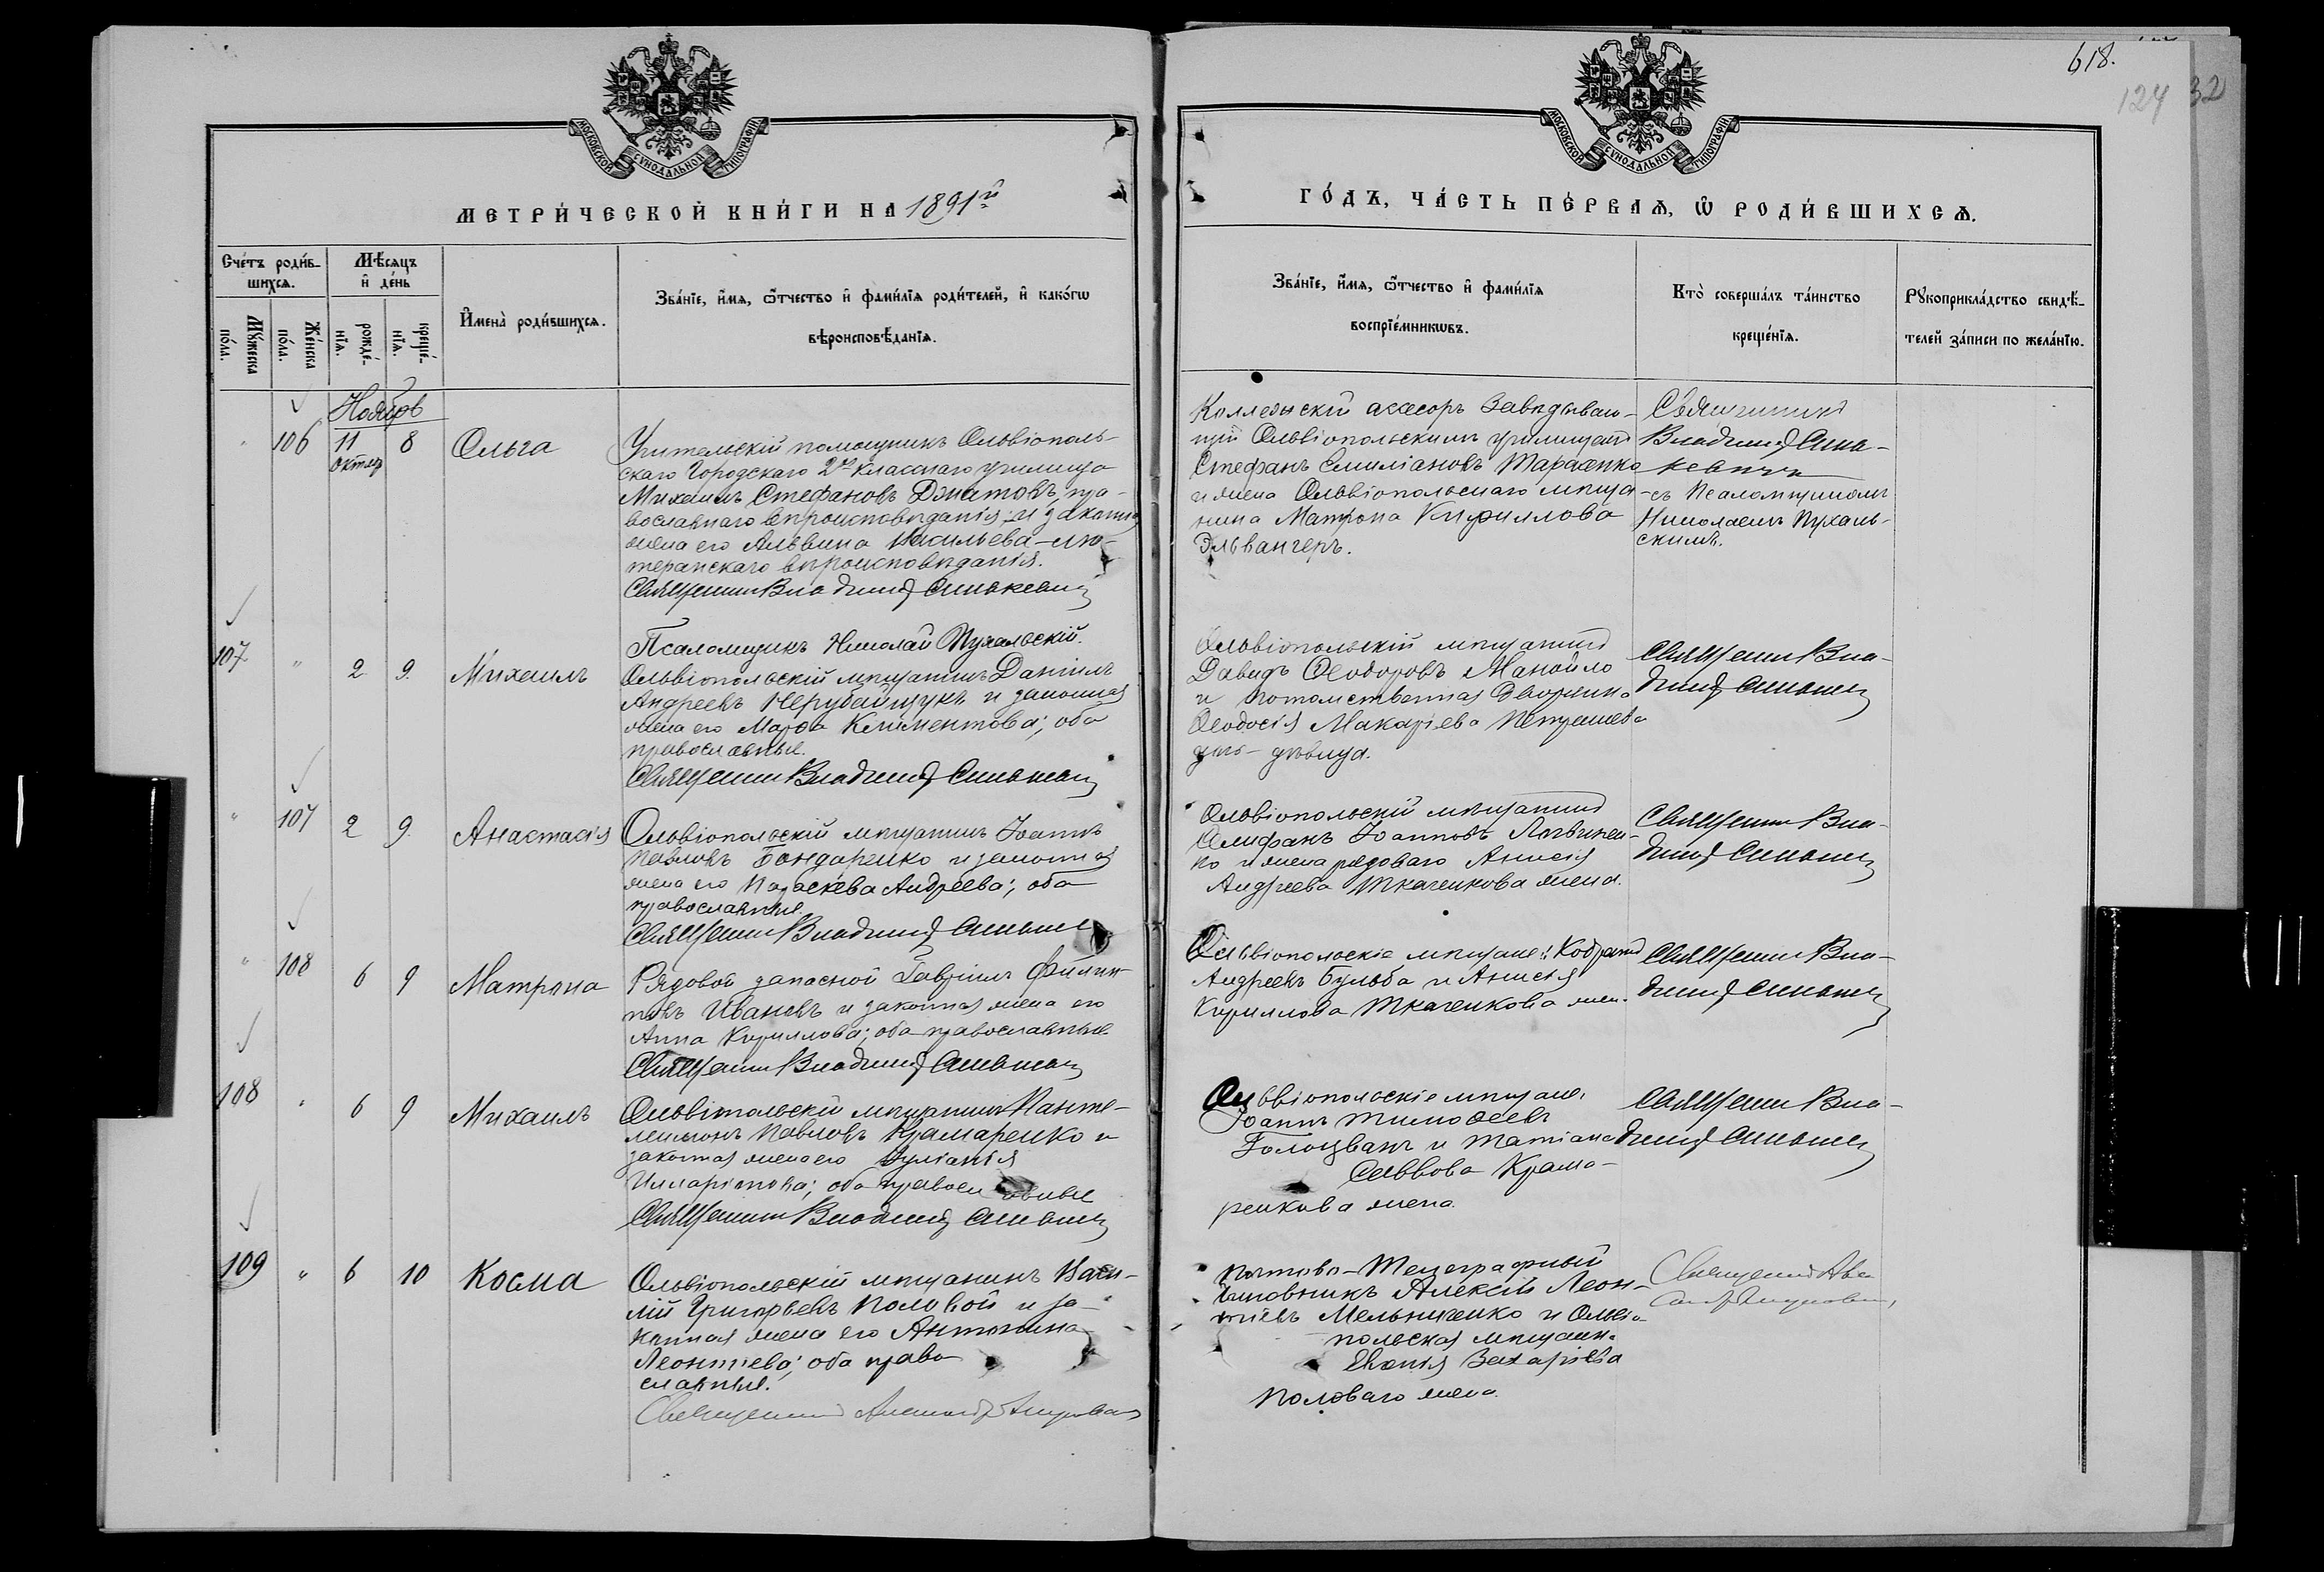 618.
124
32
МОСКОВСКОЙ СѴНОДАЛЬНОЙ ТИПОГРАФІИ
МОСКОВСКОЙ СѴНОДАЛЬНОЙ ТИПОГРАФІИ
МЕТРИ́ЧЕСКОЙ КНИ́ГИ НА 1891й
ГО́ДЪ, ЧА́СТЬ ПЕ́РВАѦ, Ѡ҆ РОДИ́ВШИХСѦ.
Сче́тъ роди́в-
шихсѧ.
Мꙋ́жеска
по́ла.
Же́нска
по́ла.
Мѣ́сѧцъ
и҆ де́нь
рожде́-
нїѧ.
креще́-
нїѧ.
И҆мена̀ роди́вшихсѧ.
Зва́нїе, и҆́мѧ, ѻ҆́тчество и҆ фами́лїѧ роди́телей, и҆ како́гѡ
вѣроисповѣ́данїѧ.
Зва́нїе, и҆́мѧ, ѻ҆́тчество и҆ фами́лїѧ
воспрїе́мникѡвъ.
Кто̀ соверша́лъ та́инство
креще́нїѧ.
Рꙋкоприкла́дство свидѣ́-
телей за́писи по жела́нїю.
Ноябрь
" 106 11 октяб 8 Ольга
Учительскій помощникъ Ольвіополь-
скаго Городскаго 2хъ класснаго училища
Михаилъ Стефановъ Долматовъ, пра-
вославнаго вѣроисповѣданія; и законная
жена его Альвина Васильева - лю-
теранскаго вѣроисповѣданія.
Священникъ Владиміръ Синькевичъ
Псаломщикъ Николай Пухальскій.
Коллежскій асесоръ Завѣдываю-
щій Ольвіопольскимъ училищемъ
Стефанъ Емиліановъ Тарасенко
и жена Ольвіопольскаго мѣща-
нина Матрона Кириллова
Эльвангеръ.
Священникъ
Владиміръ Синь-
кевичъ
съ Псаломщикомъ
Николаемъ Пухаль-
скимъ.
107 " 2 9. Михаилъ
Ольвіопольскій мѣщанинъ Даніилъ
Андреевъ Нерубайщукъ и законная
жена его Марѳа Климентова; оба
православные.
Священникъ Владиміръ Синькевичъ
Ольвіопольскій мѣщанинъ
Давидъ Ѳеодоровъ Манойло
и потомственная Дворянка
Ѳеодосія Макаріева
дѣвица.
Священникъ Вла-
диміръ Синькевичъ
" 107 2 9. Анастасія
Ольвіопольскій мѣщанинъ Іоаннъ
Павловъ Бондаренко и законная
жена его Параскева Андреева; оба
православные.
Священникъ Владиміръ Синькевичъ
Ольвіопольскій мѣщанинъ
Селифанъ Іоанновъ Логвинен-
ко и жена рядоваго Анисія
Андреева Ткаченкова жена.
Священникъ Вла-
диміръ Синькевичъ
" 108 6 9 Матрона
Рядовой запасной Гавріилъ Филип-
повъ Ивановъ и законная жена его
Анна Кириллова; оба православные.
Священникъ Владиміръ Синькевичъ
Ольвіопольскіе мѣщане: Кодратъ
Андреевъ Бульба и Анисія
Кириллова Ткаченкова жен.
Священникъ Вла-
диміръ Синькевичъ
108 " 6 9 Михаилъ
Ольвіопольскій мѣщанинъ Панте-
леимонъ Павловъ Крамаренко и
законная жена его Іуліанія
Илларіонова; оба православные
Священникъ Владиміръ Синькевичъ
Ольвіопольскіе мѣщане,
Іоаннъ Тимоѳеевъ
Голоцванъ и Татіана
Саввова Крама-
ренкова жена.
Священникъ Вла-
диміръ Синькевичъ
109 " 6 10 Косма
Ольвіопольскій мѣщанинъ Васи-
лій Григорьевъ Половой и за-
конная жена его Антонина
Леонтіева; оба право
славные.
Священникъ Александръ
Почтово-Телеграфный
Чиновникъ Алексій Леон-
тіевъ Мельниченко и Ольвіо
польская мѣщанка
Захаріева
Половаго жена.
Священникъ Але